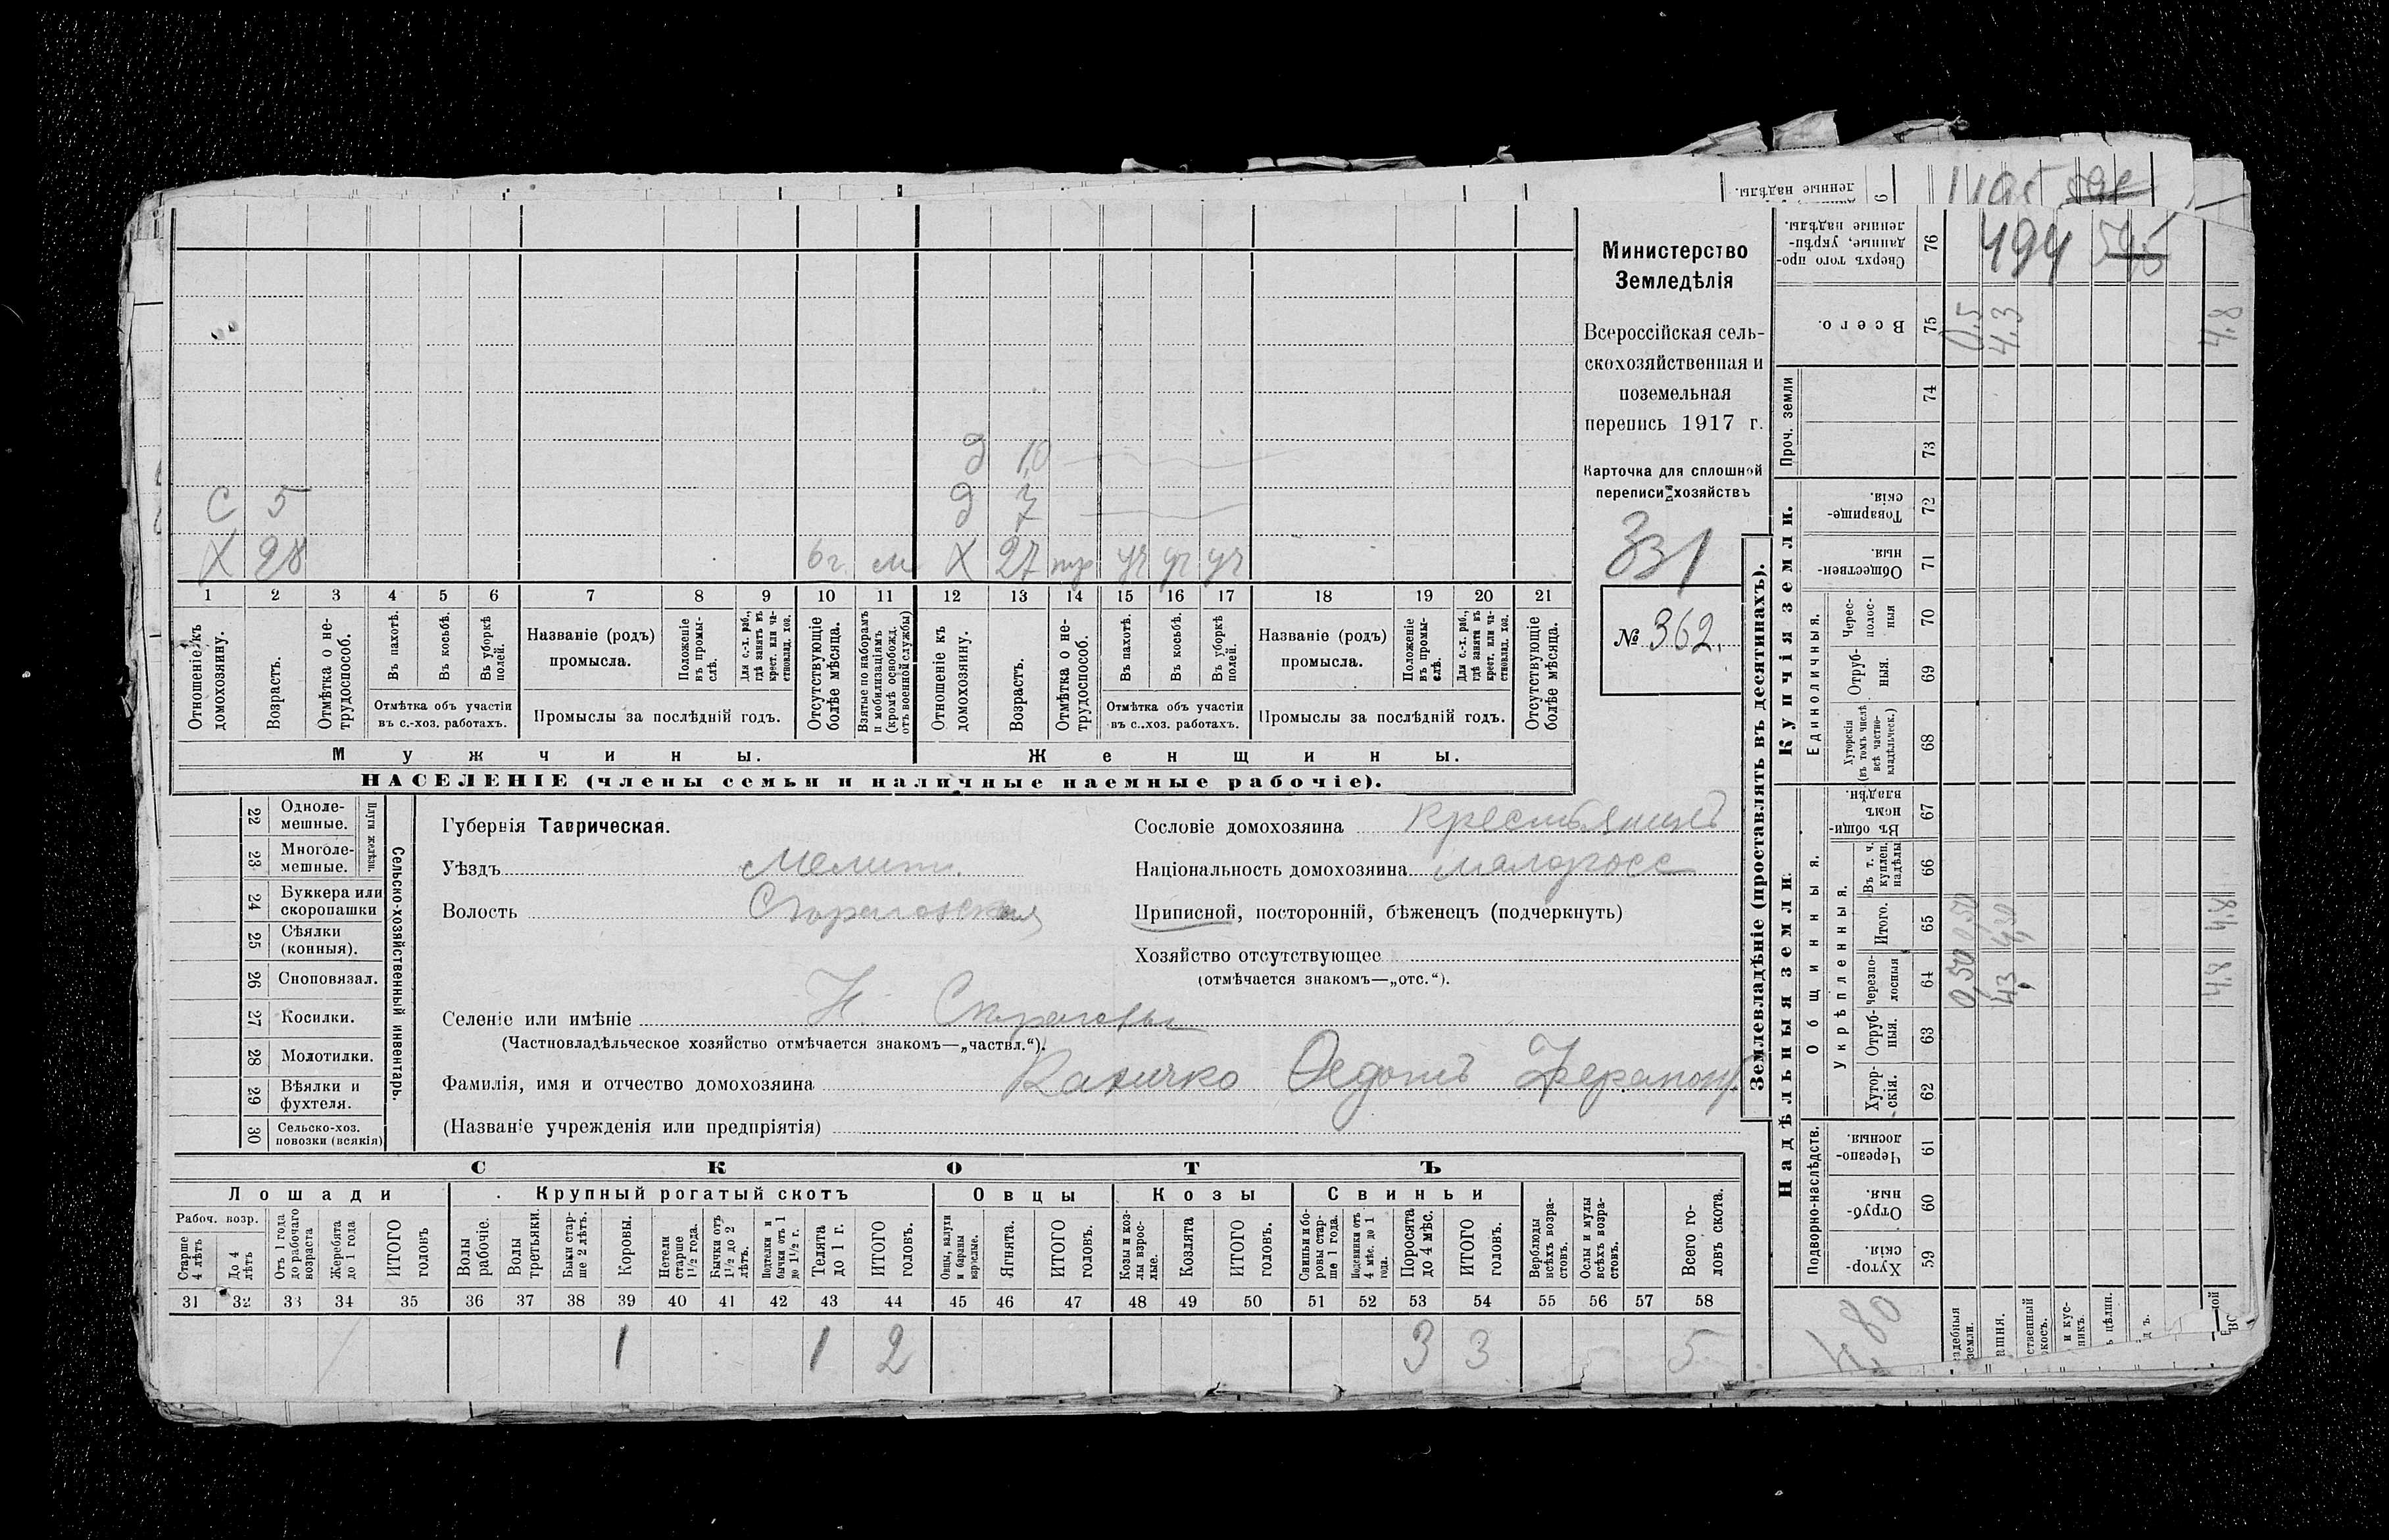 Министерство
Земледѣлія
Всероссійская сель-
скохозяйственная и
поземельная
перепись 1917 г.
Карточка для сплошной
переписи хозяйствъ
331
№ 362.
д 10
С 5 д 7
Х 28 6 г. м Х 27 тр уч уч уч
1 2 3 4 5 6 7 8 9 10 11 12 13 14 15 16 17 18 19 20 21
Отношеніе къ домохозяину.
Возрастъ.
Отмѣтка о не-трудоспособ.
Въ пахотѣ.
Въ косьбѣ.
Въ уборкѣ полей.
Отмѣтка объ участіи
въ с.-хоз. работахъ.
Названіе (родъ)
промысла.
Положеніе въ промы-слѣ.
Для с.-х. раб., гдѣ занятъ въ крест. или ча-стновлад. хоз.
Промыслы за послѣдній годъ.
Отсутствующіе болѣе мѣсяца.
Взятые по наборамъ и мобилизаціямъ (кромѣ освобожд. отъ военной службы)
Отношеніе къ домохозяину.
Возрастъ.
Отмѣтка о не-трудоспособ.
Въ пахотѣ.
Въ косьбѣ.
Въ уборкѣ полей.
Отмѣтка объ участіи
въ с.-хоз. работахъ.
Названіе (родъ)
промысла.
Положеніе въ промы-слѣ.
Для с.-х. раб., гдѣ занятъ въ крест. или ча-стновлад. хоз.
Промыслы за послѣдній годъ.
Отсутствующіе болѣе мѣсяца.
Мужчины. Женщины.
НАСЕЛЕНІЕ (члены семьи и наличные наемные рабочіе).
22 Одноле-мешные.
23 Многоле-мешные.
Плуги желѣзн.
24 Буккера или скоропашки
25 Сѣялки (конныя).
26 Сноповязал.
27 Косилки.
28 Молотилки.
29 Вѣялки и фухтеля.
30 Сельско-хоз. повозки (всякія)
Сельско-хозяйственный инвентарь.
Губернія Таврическая.
Уѣздъ Мелит.
Волость
Селеніе или имѣніе Н.
(Частновладѣльческое хозяйство отмѣчается знакомъ—„частвл.“).
Фамилія, имя и отчество домохозяина Федотъ Ферапонт.
(Названіе учрежденія или предпріятія)
Сословіе домохозяина крестьянинъ
Національность домохозяина малоросс
Приписной, посторонній, бѣженецъ (подчеркнуть)
Хозяйство отсутствующее
(отмѣчается знакомъ—„отс.“).
СКОТЪ
Лошади Крупный рогатый скотъ Овцы Козы Свиньи
Рабоч. возр.
Старше 4 лѣтъ
До 4 лѣтъ
Отъ 1 года до рабочаго возраста
Жеребята до 1 года
ИТОГО головъ
Волы рабочіе.
Волы третьяки.
Быки стар-ше 2 лѣтъ.
Коровы.
Нетели старше 1½ года.
Бычки отъ 1½ до 2 лѣтъ.
Подтелки и бычки отъ 1 до 1½ г.
Телята до 1 г.
ИТОГО головъ.
Овцы, валухи и бараны взрослые.
Ягнята.
ИТОГО головъ.
Козы и коз-лы взрос-лые.
Козлята
ИТОГО головъ.
Свиньи и бо-ровы стар-ше 1 года.
Подсвинки отъ 4 мѣс. до 1 года.
Поросята до 4 мѣс.
ИТОГО головъ.
Верблюды всѣхъ возра-стовъ.
Ослы и мулы всѣхъ возра-стовъ.
Всего го-ловъ скота.
31 32 33 34 35 36 37 38 39 40 41 42 43 44 45 46 47 48 49 50 51 52 53 54 55 56 57 58
1 1 2 3 3 5
Землевладѣніе (проставлять въ десятинахъ).
Надѣльныя земли. Купчія земли. Проч. земли
Подворно-наслѣдств.
Общинныя.
Укрѣпленныя.
Единоличныя.
59 Хутор-скія.
60 Отруб-ныя.
61 Черезпо-лосныя.
62 Хутор-скія.
63 Отруб-ныя.
64 Черезпо-лосныя
65 Итого.
66 Въ т. ч. куплен. надѣлы
67 Въ общи-номъ владѣн.
68 Хуторскія (въ томъ числѣ всѣ частно-владѣльческ.)
69 Отруб-ныя.
70 Черес-полос-ныя
71 Обществен-ныя.
72 Товарище-скія.
73
74
75 Всего.
76 Сверхъ того про-данные, укрѣп-ленные надѣлы.
ленные надѣлы.
0,50 0,50 0.5
43 4,30 4.3
4,8 4,8 4,8
494 595
4,80